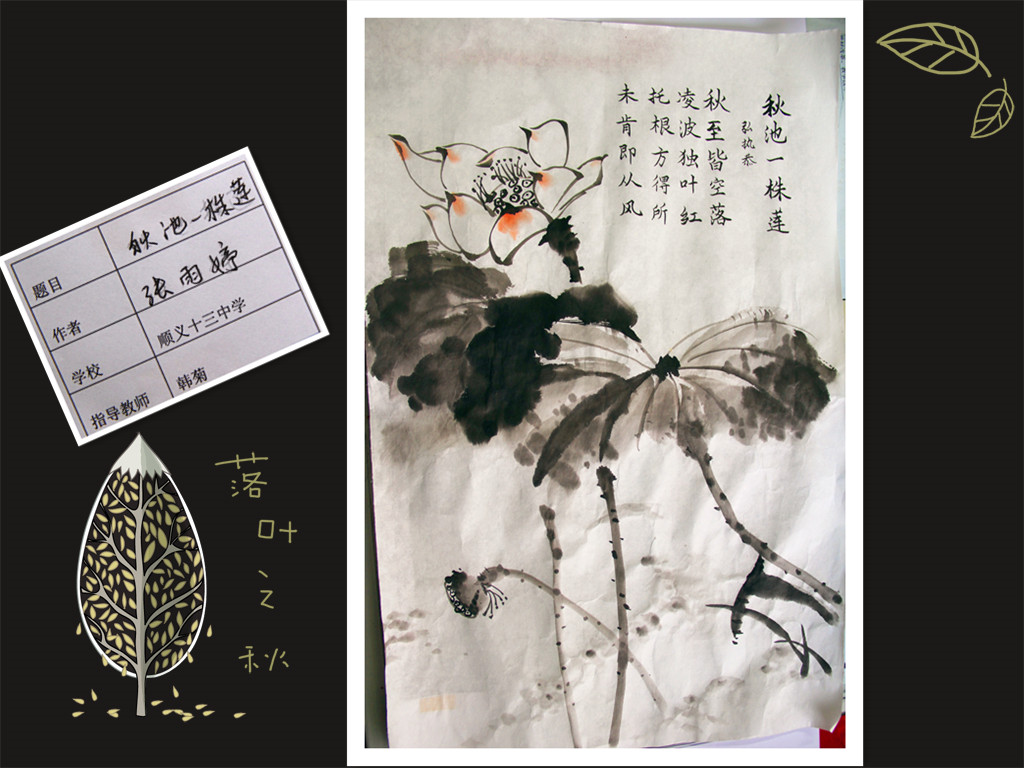 题目 秋池一株莲
作者 张雨婷
学校 顺义十三中学
指导教师 韩菊
落
叶
之
秋
秋池一株莲
弘执恭
秋至皆空落
凌波独叶红
托根方得所
未肯即从风